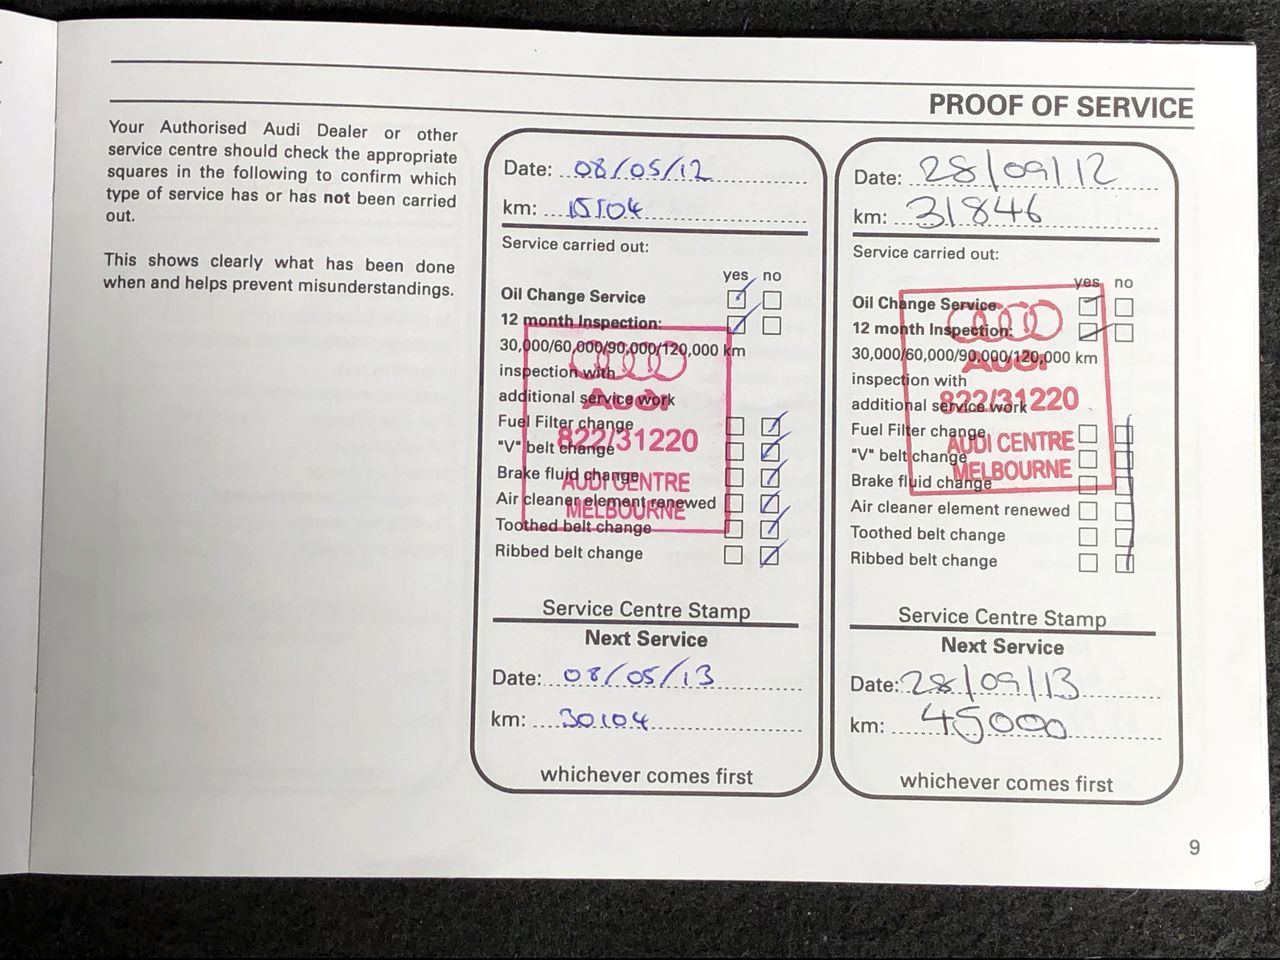 PROOF OF SERVICE
Your Authorised Audi Dealer or other
service centre should check the appropriate
squares in the following to confirm which
type of service has or has not been carried
out.
This shows clearly what has been done
when and helps prevent misunderstandings.
Date: 08/05/12
km: 15104
Service carried out:
yes no
Oil Change Service
12 month Inspection:
30,000/60,000/90,000/120,000 km
inspection with
additional service work
Fuel Filter change
"V" belt change
Brake fluid change
Air cleaner element renewed
Toothed belt change
Ribbed belt change
Audi
822/31220
AUDI CENTRE
MELBOURNE
Service Centre Stamp
Next Service
Date: 08/05/13
km: 30104
whichever comes first
Date: 28/09/12
km: 31846
Service carried out:
yes no
Oil Change Service
12 month Inspection:
30,000/60,000/90,000/120,000 km
inspection with
additional service work
Fuel Filter change
"V" belt change
Brake fluid change
Air cleaner element renewed
Toothed belt change
Ribbed belt change
Audi
822/31220
AUDI CENTRE
MELBOURNE
Service Centre Stamp
Next Service
Date: 28/09/13
km: 45000
whichever comes first
9